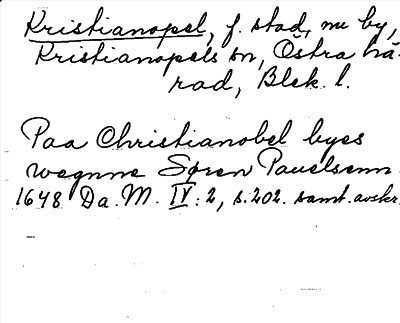 Kristianopel, f. stad, nu by,
Kristianopels sn, Östra hä-
rad, Blek. l.
Paa Christianobel byes
wegnne Søren Pauelsenn
1648 Da. M. IV: 2, s. 202. samt. avskr.